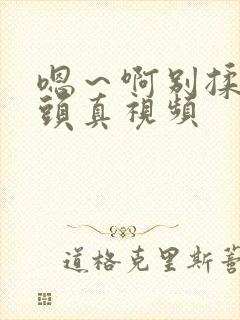 嗯～啊别揉
頭真视頻
道格克里斯